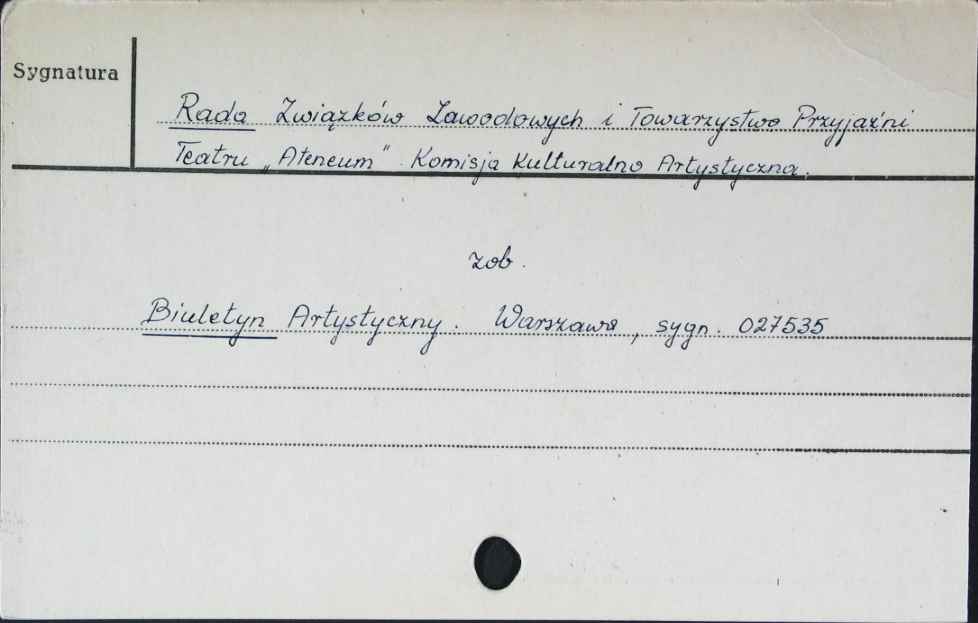 Sygnatura
Rada Związków Zawodowych i Towarzystwo Przyjaźni
Teatru „Ateneum". Komisja Kulturalno Artystyczna.
zob.
Biuletyn Artystyczny. Warszawa, sygn. 027535